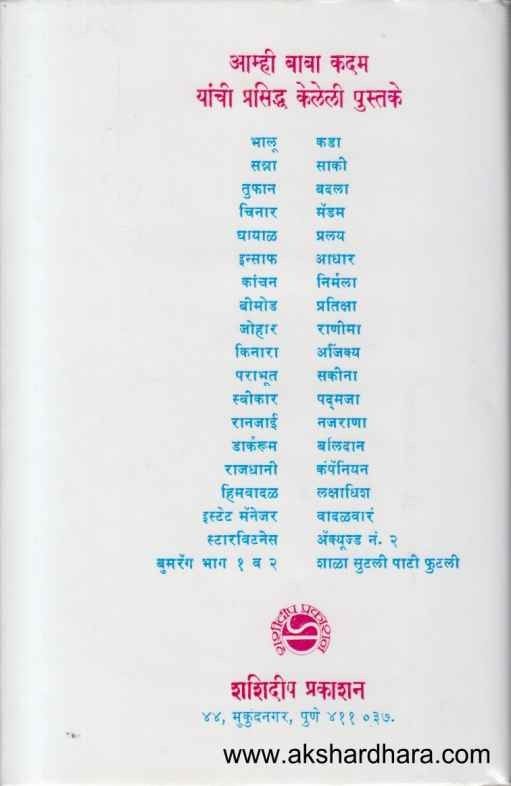 आम्ही बाबा कदम
यांची प्रसिद्ध केलेली पुस्तके
भालू कडा
सन्ना साकी
तुफान बदला
चिनार मॅडम
घायाळ प्रलय
इन्साफ आधार
कांचन निर्मला
बीमोड प्रतिक्षा
जोहार राणीमा
किनारा अजिंक्य
पराभूत सकीना
स्वीकार पद्मजा
रानजाई नजराणा
डार्करूम बलिदान
राजधानी कंपॅनियन
हिमवादळ लक्षाधिश
इस्टेट मॅनेजर वादळवारं
स्टारविटनेस अॅक्यूज्ड नं. २
बुमरँग भाग १ व २ शाळा सुटली पाटी फुटली
शशीदीप प्रकाशन
शशिदीप प्रकाशन
४४, मुकुंदनगर, पुणे ४११ ०३७.
www.akshardhara.com